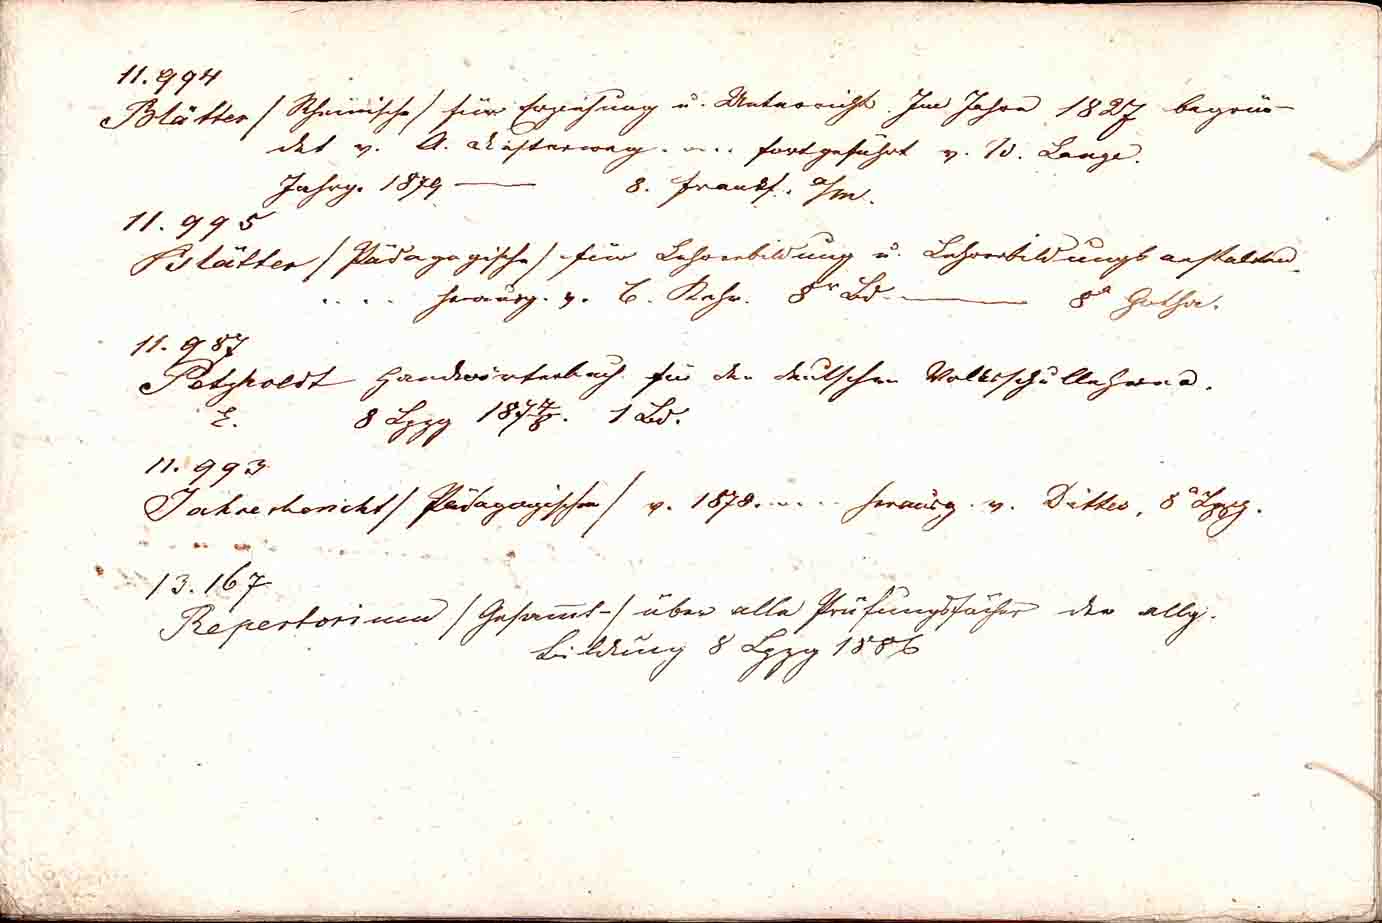 11.994
Blätter / Rheinische / für Erziehung u. Unterricht. Im Jahre 1827 begrün-
det v. A. Diesterweg. .... fortgeführt v. W. Lange.
Jahrg. 1879 —— 8. Frankf. a/m.
11.995
Blätter / Pädagogische / für Lehrerbildung u. Lehrerbildungsanstalten.
.... herausg. v. C. Kehr. 8r Bd. —— 8° Gotha.
11.987
Petzholdt Handwörterbuch für den deutschen Volksschullehrer.
E. 8 Lpzg 1874/8. 1 Bd.
11.993
Jahresbericht / Pädagogischer / v. 1878. .... herausg. v. Dittes, 8° Lpzg.
13.167
Repertorium / Gesammt- / über alle Prüfungsfächer der allg.
Bildung 8 Lpzg 1886